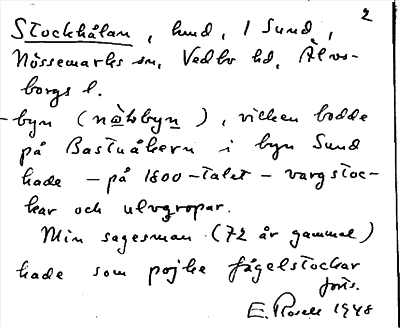 2
Stockhålan, hmd, 1 Sund,
Nössemarks sn, Vedbo hd, Älvs-
borgs l.
byn (nàbbyn), vilken bodde
på Bastuåkern i byn Sund
hade – på 1800-talet – vargstoc-
kar och ulvgropar.
Min sagesman (72 år gammal)
hade som pojke fågelstockar
forts.
E. Rosell 1948